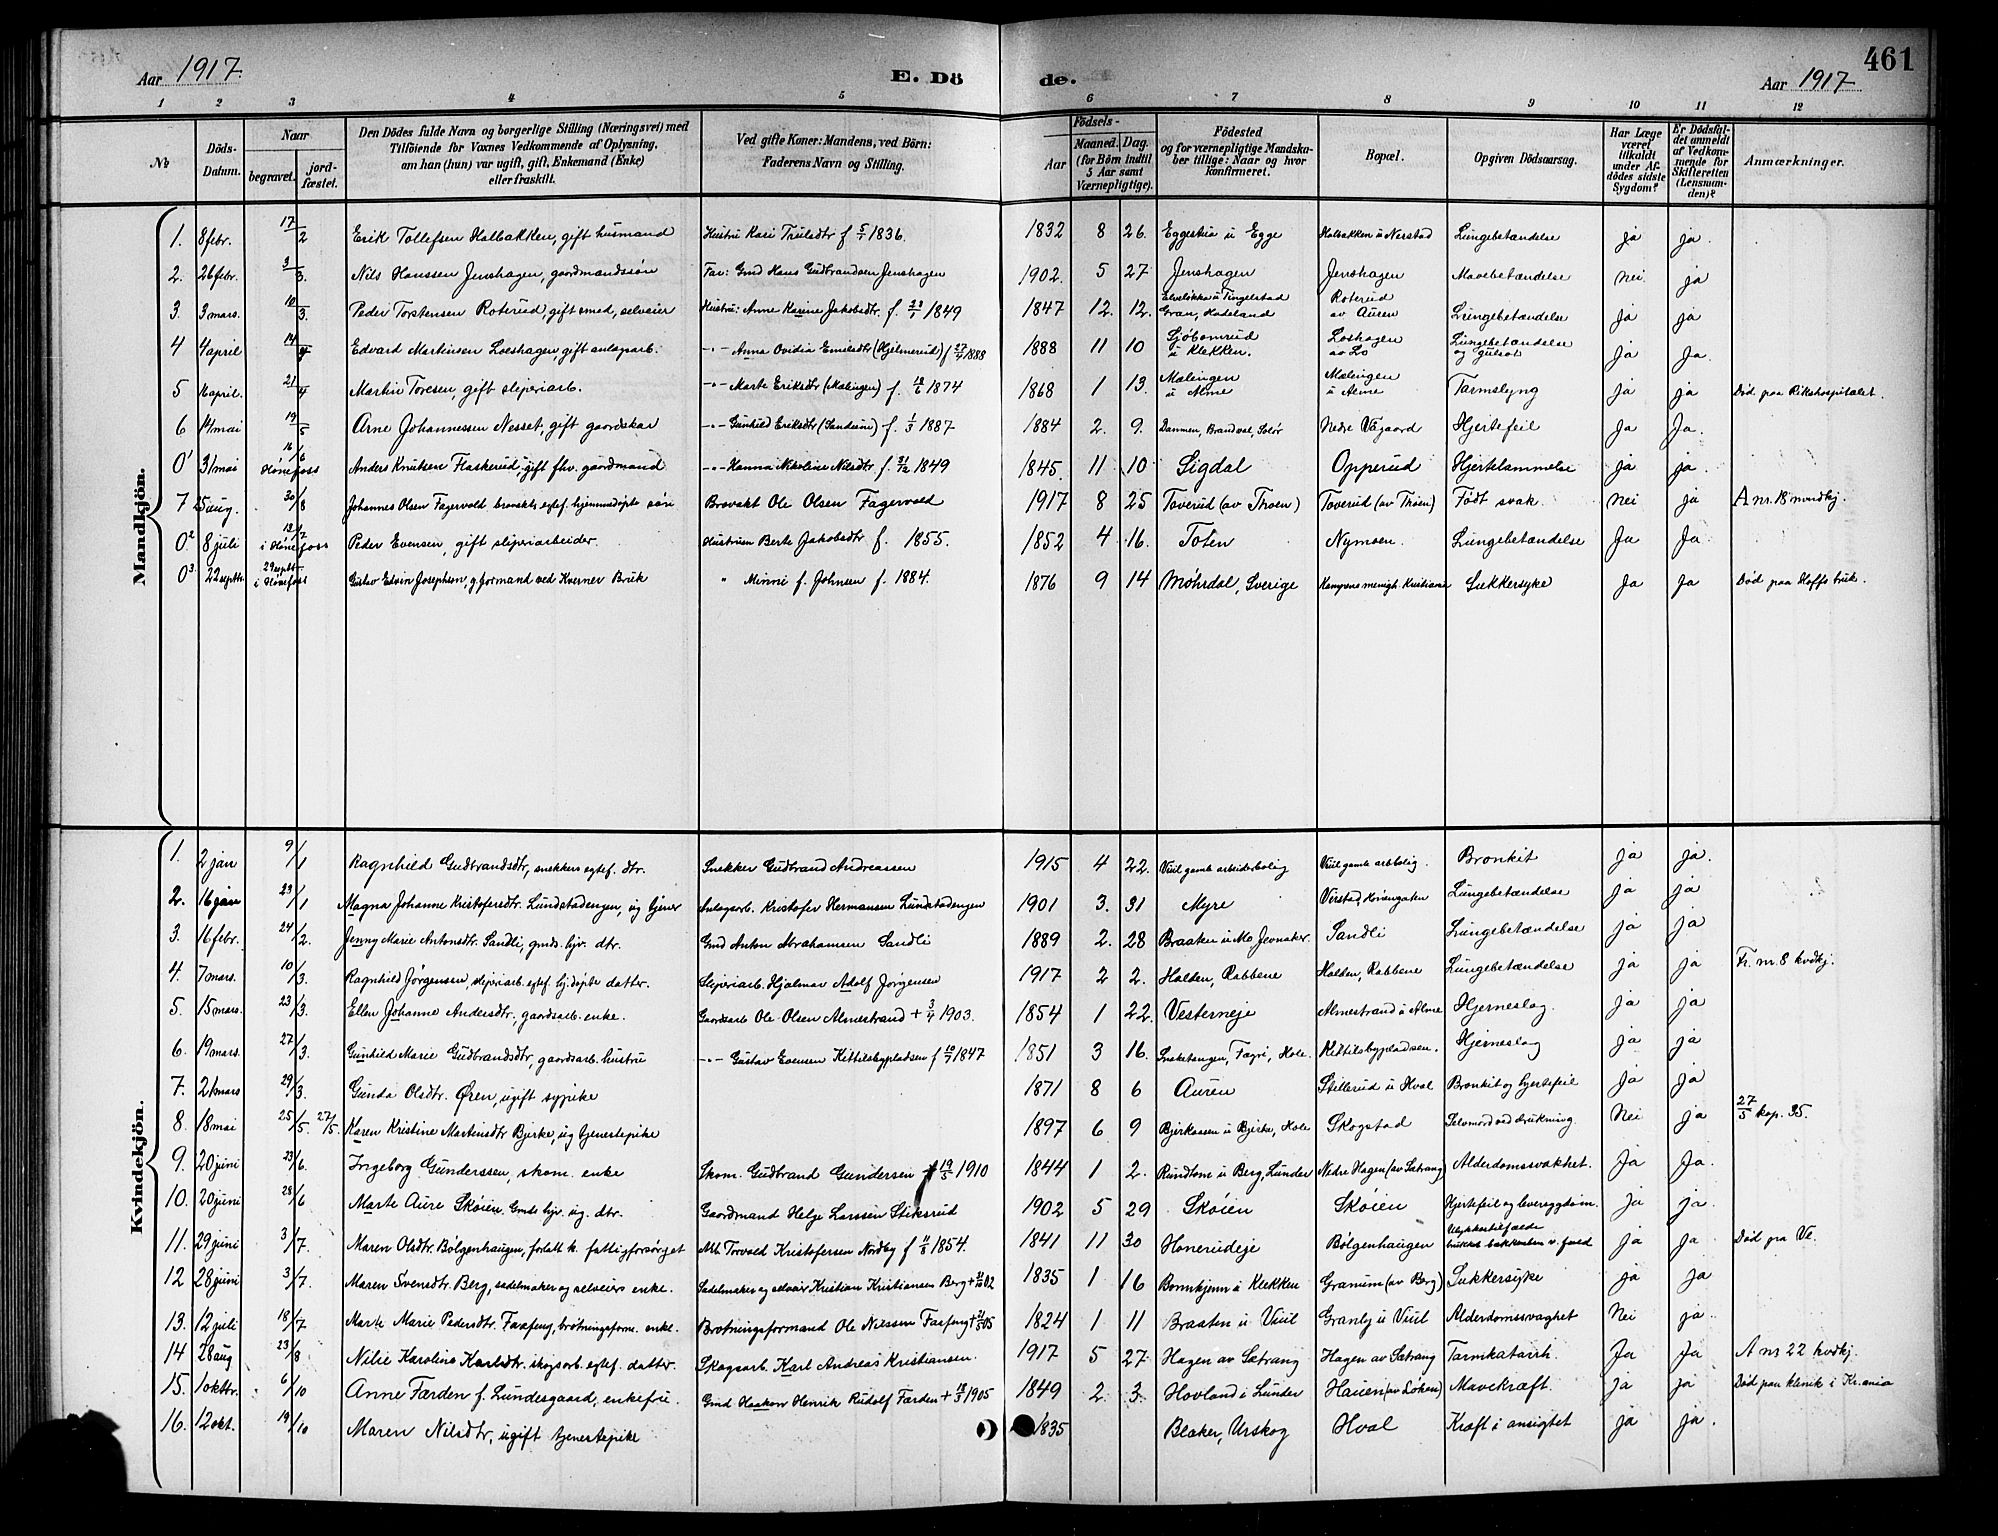 461
Aar 1917.
E. Dö
de.
Aar 1917
1 2 3 4 5 6 7 8 9 10 11 12
No
Döds-Datum.
Naar
begravet.
jord-fæstet.
Den Dödes fulde Navn og borgerlige Stilling (Næringsvei) med
Tilföiende for Voxnes Vedkommende af Oplysning,
om han (hun) var ugift, gift, Enkemand (Enke)
eller fraskilt.
Ved gifte Koner: Mandens, ved Börn:
Faderens Navn og Stilling.
Födsels-
Aar
Maaned. Dag.
(for Börn indtil
5 Aar samt
Værnepligtige).
Födested
og for værnepligtige Mandska-
ber tillige: Naar og hvor
konfirmeret.
Bopæl.
Opgiven Dödsaarsag.
Har Læge
været
tilkaldt
under Af-
dödes sidste
Sygdom?
Er Dödsfal-
det anmeldt
af Vedkom-
mende for
Skifteretten
(Lensman-
den)?
Anmærkninger.
Mandkjön.
1. 8 febr. 17/2 Erik Tollefsen Halbakken, gift husmand Hustru Kari Trulsdtr f 5/1 1836. 1832 8 26. Eggeskia u Egge Halbakken u Nerstad Lungebetændelse ja ja.
2. 26 febr. 3/3. Nils Hanssen Jenshagen, gaardmandssøn Far: Gmd Hans Gudbrandsen Jenshagen 1902. 5 27 Jenshagen Jenshagen Mavebetændelse nei ja
3. 3 mars. 10/3. Peder Torstensen Roterud, gift smed, selveier Hustru: Anne Karine Jakobsdtr. f. 1849 1847 12. 12. Elveløkka u Tingelstad Gran, Hadeland Roterud av Auren Lungebetændelse ja ja
4 4 april 14/4 Edvard Martinsen Loeshagen, gift anlagsarb. -"- Anna Ovidia Emilsdtr (Hjelmerud) f 27/4 1888 1888 11 10 u Klekken. Loshagen av Lo Lungebetændelse og gulsot ja Ja.
5 16 april. 21/4 Martin Toresen, gift sliperiarb. -"- Marte Eriksdtr (Mælingen) f. 1874 1868 1 13. Mælingen u Alme Mælingen u Alme Tarmslyng ja ja Død paa Rikshospitalet.
6 14 mai 19/5 Arne Johannessen Nesset, gift gaardskar -"- Gunhild Eriksdtr f. 1/3 1887 1884 2. 9. Dammen, Brandval, Solør Nedre Vægaard Hjertefeil Ja Ja.
0¹ 31 mai 16/6 Hønefoss Anders Knutsen Flaskerud, gift fhv. gaardmand -"- Hanna Nikoline Nilsdtr f. 31/12 1849 1845. 11 10 Sigdal Opperud Hjertelammelse ja ja.
7 25 aug. 30/8 Johannes Olsen Fagervold, hjemmedøpt søn Brovakt Ole Olsen Fagervold 1917 8 25 Toverud (av Thoen) Toverud (av Thoen) Født svak. nei ja A nr. 18 mandkj.
0² 8 juli 13/7 i Hønefoss Peder Evensen, gift sliperiarbeider. Hustruen Berte Jakobsdtr f. 1855. 1852 4 16. Toten Nymoen. Lungebetændelse Ja Ja.
0³. 22 septbr. 29 septbr. i Hønefoss Gustav Edvin Josephsen, g. formand ved Kværner Bruk " Minni f. Johnsen f. 1884. 1876 9 14 Møhrdal, Sverige Kampens menigh. Kristiania Sukkersyke Ja Ja Død paa Hoffs bruk.
Kvindekjön.
1. 2 jan 9/1 Ragnhild Gudbrandsdtr, snekkers egtef. dtr. Snekker Gudbrand Andreassen 1915 4 22. Viul gamle arbeiderbolig Viul gamle arbbolig. Bronkit ja ja.
2. 16 jan 23/1 Magna Johanne Kristofersdtr. Lundstadengen, ug tjener Anlagsarb. Kristofer Hermansen Lundstadengen 1901 3. 31 Myre Lungebetændelse ja ja
3. 16 febr. 24/2. Jenny Marie Antonsdtr. Sandli, gmds. hjv. dtr. Gmd Anton Abrahamsen Sandli 1889 2. 28 Braaten u Mo Jevnaker. Sandli Lungebetændelse ja ja
4. 7 mars. 10/3. Ragnhild Jørgensen, sliperiarb. egtef. hj. døpte datter. Sliperiarb. Hjalmar Adolf Jørgensen 1917 2 2. Halden, Rabbene Halden, Rabbene Lungebetændelse ja ja Fr. nr. 8 kvdkj.
5. 15 mars. 23/3. Ellen Johanne Andersdtr, gaardsarb. enke. Gaardsarb Ole Olsen Almestrand + 3/4 1903. 1854 1 22. Vesterneje Almestrand u Alme Hjerneslag. ja ja
6. 19 mars. 27/3. Gunhild Marie Gudbrandsdtr, gaardsarb. hustru -"- Gustav Evensen Kittilsbypladsen f 10/7 1847 1851 3 16. Kittilsbypladsen. Hjerneslag ja ja
7. 21 mars 29/3. Gunda Olsdtr. Øren, ugift sypike 1871 8 6 Auren Stillerud u Hval Bronkit og hjertefeil ja ja
8. 18 mai 25/5. 27/5. Karen Kristine Martinsdtr Bjerke, ug tjenestepike 1897 6 9 Bjerkaasen u Bjerke, Hole Skogstad Selvmord ved drukning. Nei ja 27/5 kap. 35.
9. 20 juni 23/6. Ingeborg Gunderssen, skom. enke Skom. Gudbrand Gundersen + 19/5 1910 1844 1 2. Rundtom u Berg, Lunder Nedre Hagen (av Sætrang) Alderdomssvakhet. Ja Ja.
10. 20 juni 28/6 Marte Aure Skøien. Gmds hjv. ug. dtr. Gaardmand Helge Larssen Stiksrud 1902 5 29 Skøien Skøien Hjertefeil og leversygdom. ja ja.
11. 29 juni 3/7. Maren Olsdtr. Bølgenhaugen, forlatt k. fattigforsørget Arb Torvald Kristofersen Nordby f 11/8 1854. 1841 11 30 Honerudeje Bølgenhaugen Ulykkestilfælde ja ja. Død paa Ve.
12 28 juni 3/7. Maren Svensdtr. Berg, sadelmaker og selveiers enke. Sadelmaker og selveier Kristian Kristiansen Berg + 02 1835 1 16 u Klekken Granum (av Berg) Sukkersyke ja ja
13. 12 juli 18/7 Marte Marie Pedersdtr. Fasfeng, brøtningsform. enke. Brøtningsformand Ole Nilssen Fasfeng + 05 1824 1 11 Braaten u Viul Granly u Viul Alderdomssvaghet Nei ja.
14 28 aug 23/8 Nilie Karoline Karlsdtr. skogsarb. egtef. datter. Skogsarb. Karl Andreas Kristiansen. 1917 5 27 Hagen av Sætrang Hagen av Sætrang Tarmkatarrh. Ja Ja A nr 22 kvdkj.
15. 1 oktbr. 6/10 Anne Færden f. Lundesgaard, enkefru. Gmd Haakon Henrik Rudolf Færden + 18/3 1905 1849 2 3. Hovland i Lunder Hauen (av Løken) Mavekræft. ja ja Død paa klinik i Kr.ania
16. 12 okt. 19/10 Maren Nilsdtr, ugift tjenestepike 1835 Blaker, Urskog Hval Kræft i ansigtet ja ja.